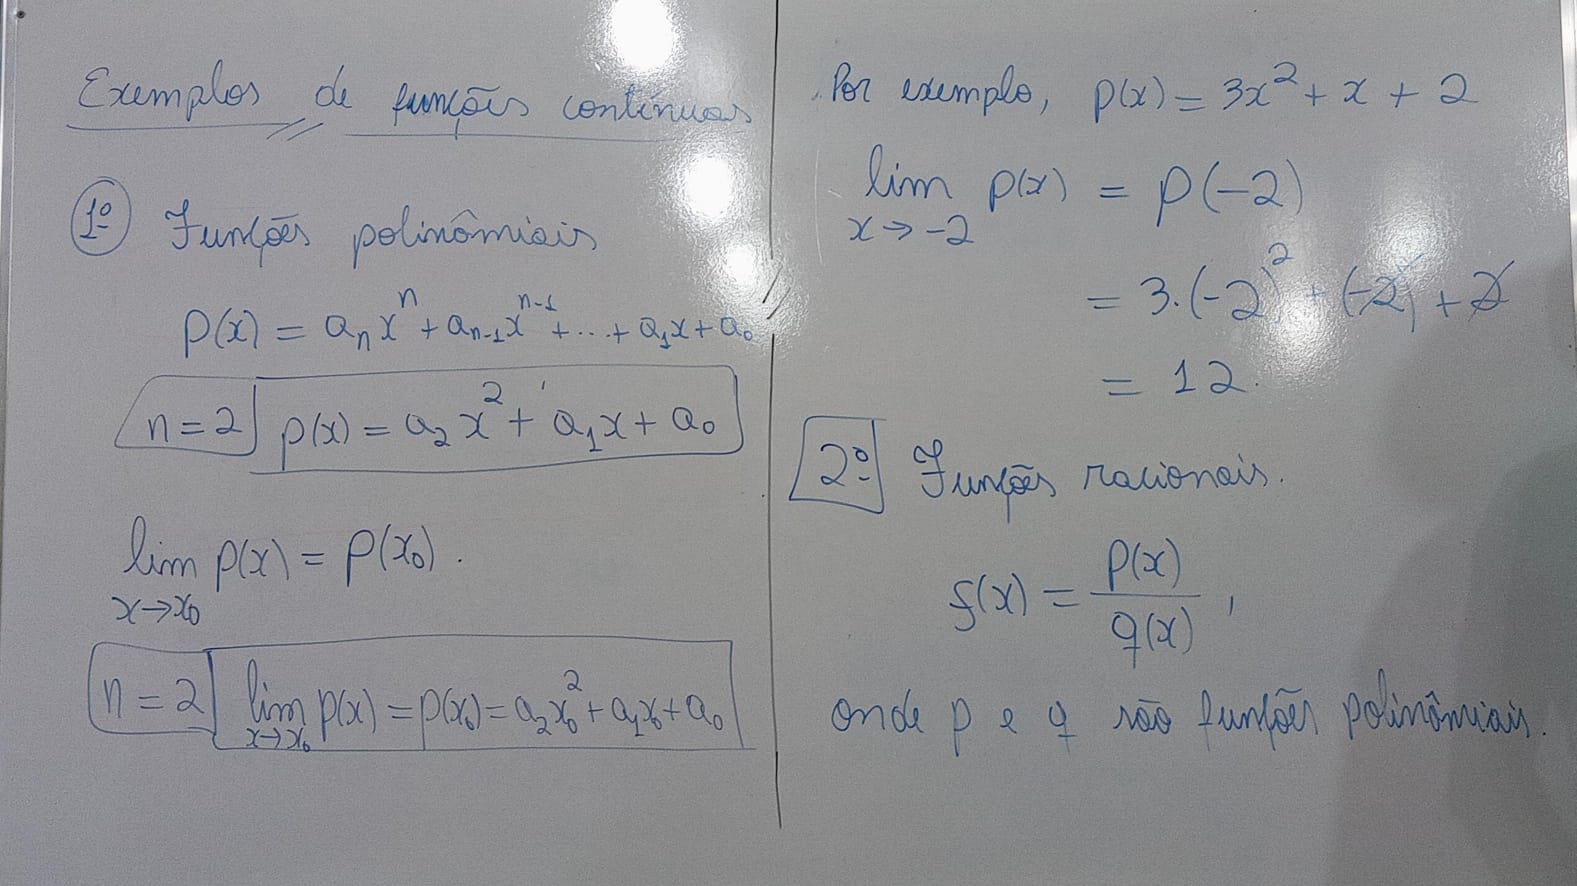 Exemplos de funções contínuas
1º Funções polinômiais
p(x) = aₙxⁿ + aₙ₋₁xⁿ⁻¹ + ... + a₁x + a₀
n = 2 p(x) = a₂x² + a₁x + a₀
lim p(x) = p(x₀).
x→x₀
n = 2 lim p(x) = p(x₀) = a₂x₀² + a₁x₀ + a₀
x→x₀
Por exemplo, p(x) = 3x² + x + 2
lim p(x) = p(-2)
x→-2
= 3.(-2)² + (-2) + 2
= 12.
2º Funções racionais.
f(x) = p(x)
q(x) ,
onde p e q são funções polinômiais.